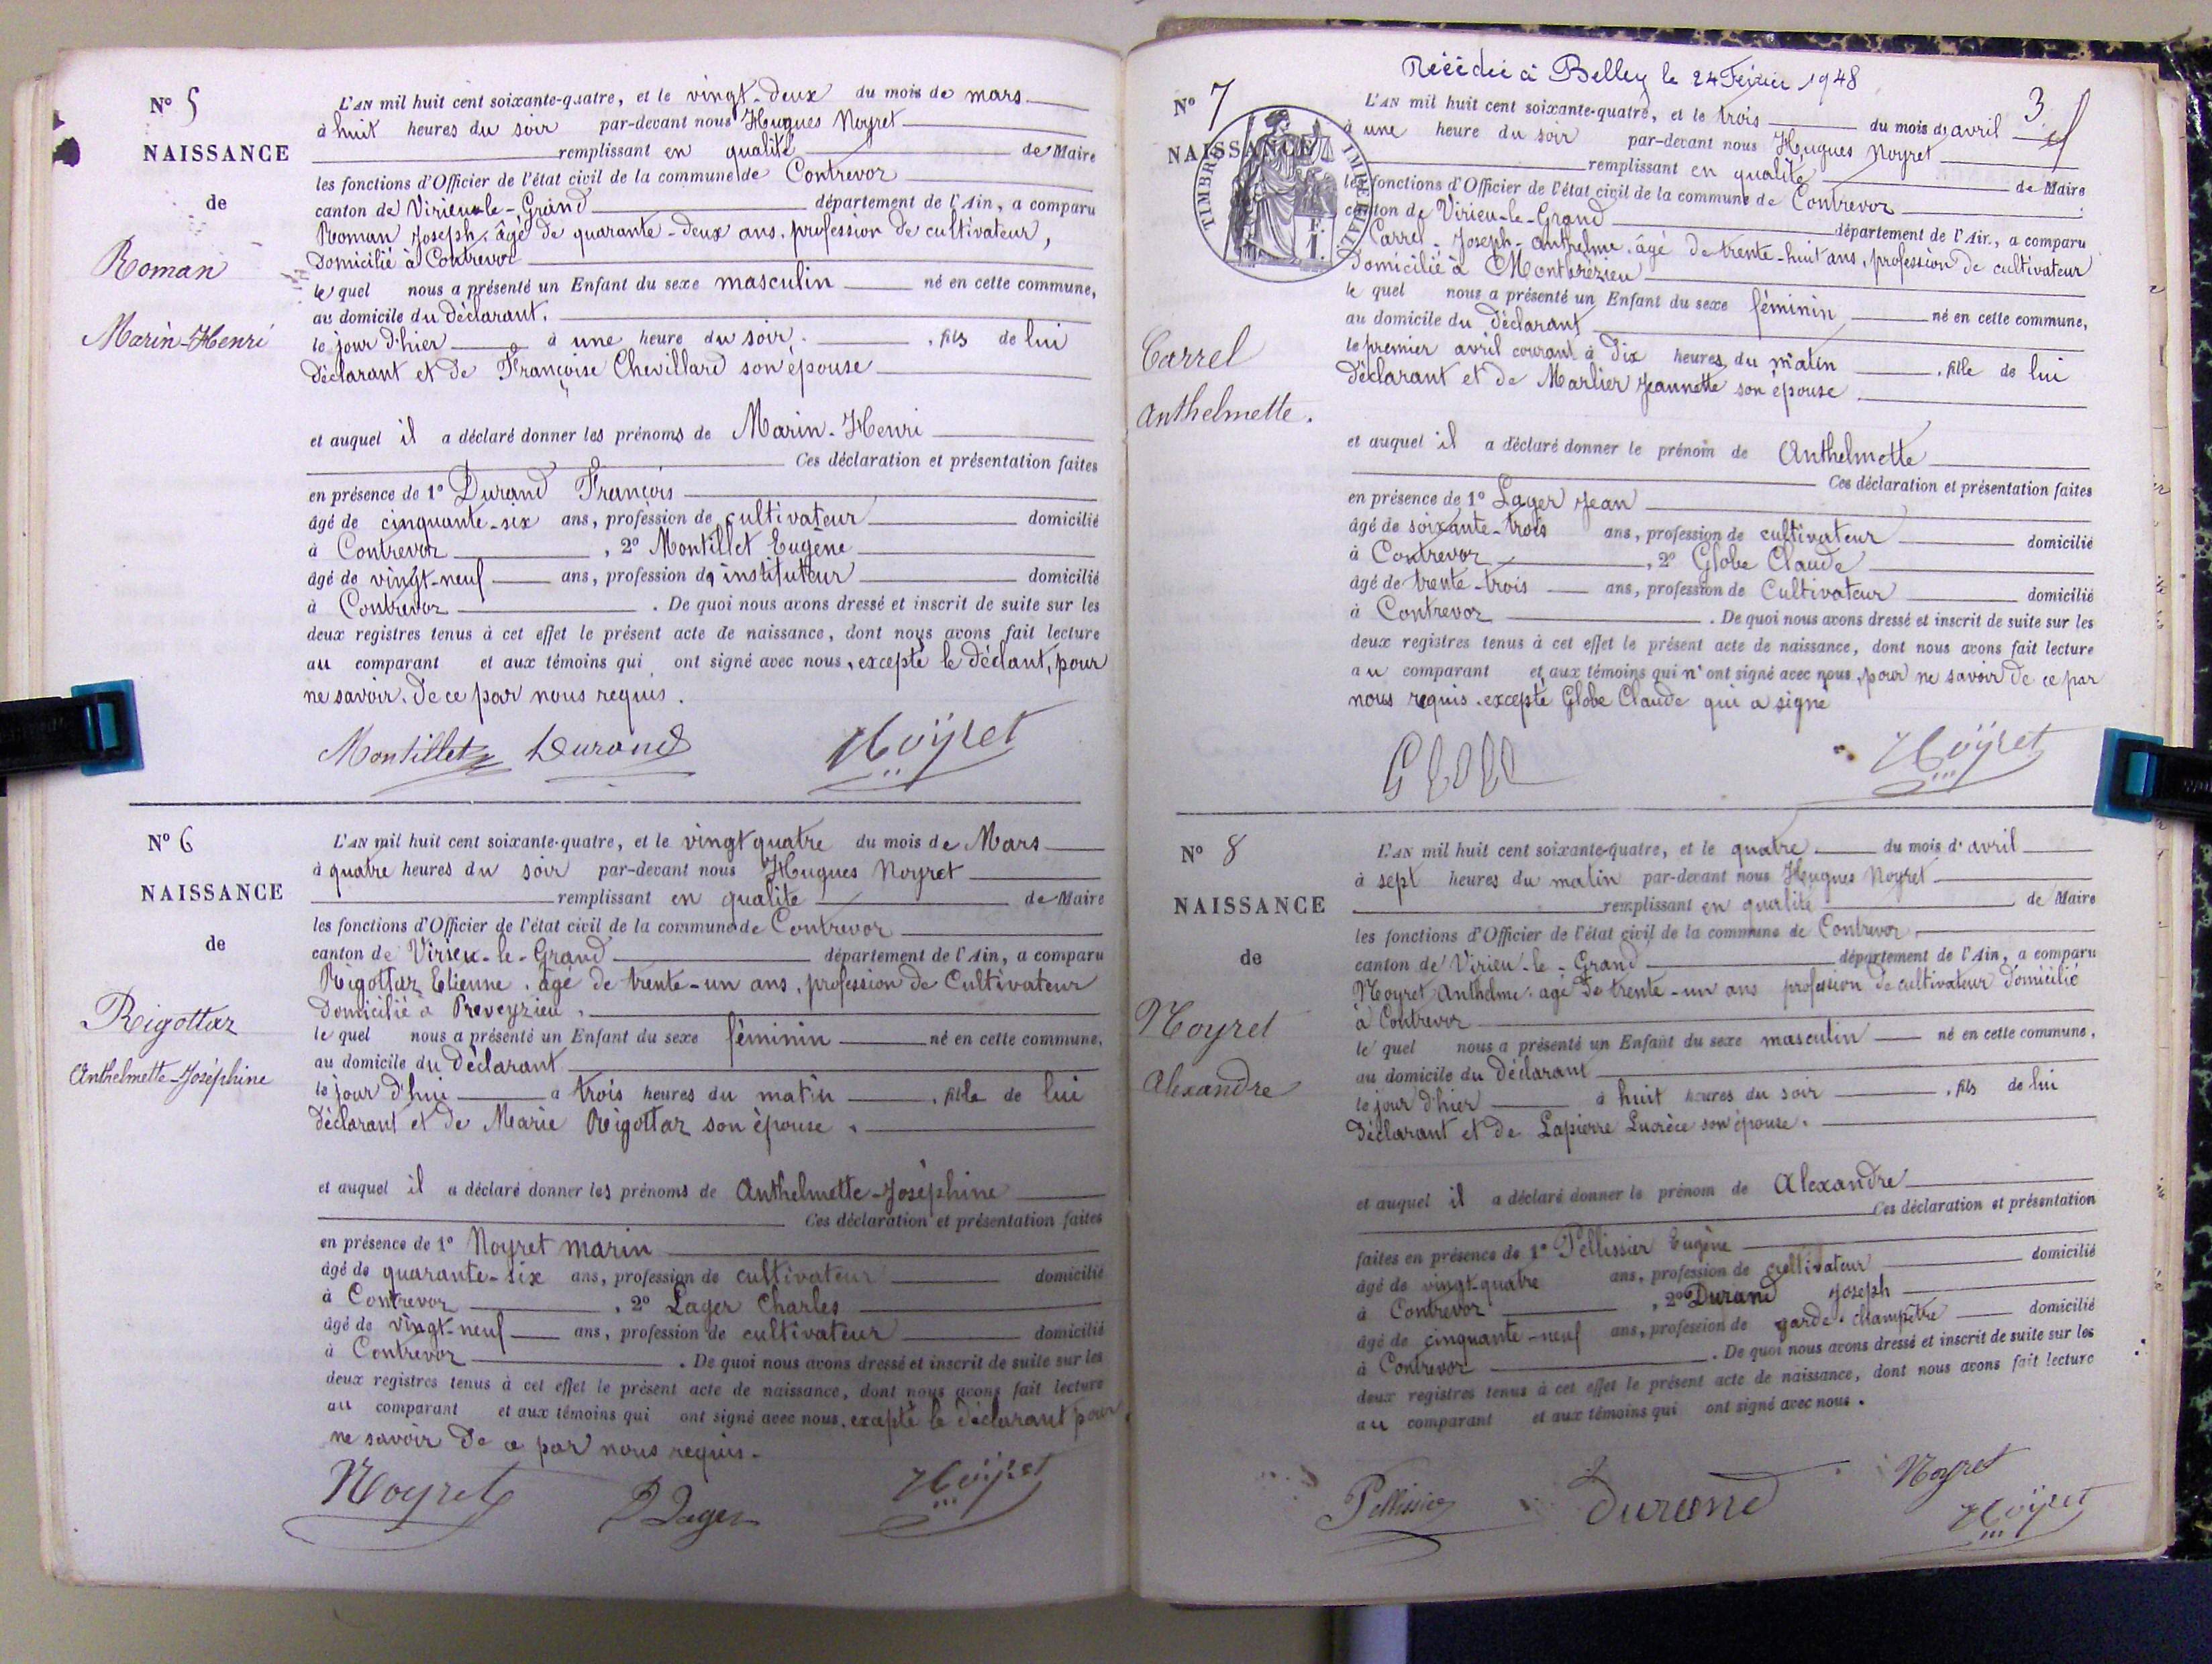 N° 5
NAISSANCE
de
Roman
Marin-Henri
L'AN mil huit cent soixante-quatre, et le vingt-deux du mois de mars
à huit heures du soir par-devant nous Hugues Noyret
remplissant en qualité de Maire
les fonctions d'Officier de l'état civil de la commune de Contrevoz
canton de Virieu-le-Grand département de l'Ain, a comparu
Roman Joseph, âgé de quarante-deux ans, profession de cultivateur,
domicilié à Contrevoz
le quel nous a présenté un Enfant du sexe masculin né en cette commune,
au domicile du déclarant.
le jour d'hier à une heure du soir, fils de lui
déclarant et de Françoise Chevillard son épouse
et auquel il a déclaré donner les prénoms de Marin-Henri
Ces déclaration et présentation faites
en présence de 1° Durand François
âgé de cinquante-six ans, profession de cultivateur domicilié
à Contrevoz, 2° Montillet Eugène
âgé de vingt-neuf ans, profession d' instituteur domicilié
à Contrevoz. De quoi nous avons dressé et inscrit de suite sur les
deux registres tenus à cet effet le présent acte de naissance, dont nous avons fait lecture
au comparant et aux témoins qui ont signé avec nous, excepté le déclant, pour
ne savoir, de ce par nous requis.
Montillet Durand Noÿret
N° 6
NAISSANCE
de
Rigottaz
Anthelmette-Joséphine
L'AN mil huit cent soixante-quatre, et le vingt quatre du mois de Mars
à quatre heures du soir par-devant nous Hugues Noyret
remplissant en qualité de Maire
les fonctions d'Officier de l'état civil de la commune de Contrevoz
canton de Virieu-le-Grand département de l'Ain, a comparu
Rigottaz Etienne, âgé de trente-un ans, profession de Cultivateur
domicilié à Preveyzieu,
le quel nous a présenté un Enfant du sexe féminin né en cette commune,
au domicile du déclarant
le jour d'hui à trois heures du matin, fille de lui
déclarant et de Marie Rigottaz son épouse.
et auquel il a déclaré donner les prénoms de Anthelmette-Joséphine
Ces déclaration et présentation faites
en présence de 1° Noyret marin
âgé de quarante-six ans, profession de cultivateur domicilié
à Contrevoz, 2° Lager Charles
âgé de vingt-neuf ans, profession de cultivateur domicilié
à Contrevoz. De quoi nous avons dressé et inscrit de suite sur les
deux registres tenus à cet effet le présent acte de naissance, dont nous avons fait lecture
au comparant et aux témoins qui ont signé avec nous, excepté le déclarant pour
ne savoir de ce par nous requis.
Noyret Lager Noÿret
Décédée à Belley le 24 Février 1948
3
N° 7
NAISSANCE
TIMBRE IMPERIAL
Carrel
Anthelmette.
L'AN mil huit cent soixante-quatre, et le trois du mois d'avril
à une heure du soir par-devant nous Hugues Noyret
remplissant en qualité de Maire
les fonctions d'Officier de l'état civil de la commune de Contrevoz
canton de Virieu-le-Grand département de l'Ain, a comparu
Carrel Joseph-Anthelme, âgé de trente-huit ans, profession de cultivateur
domicilié à Montbrézieu
le quel nous a présenté un Enfant du sexe féminin né en cette commune,
au domicile du déclarant
le premier avril courant à dix heures du matin, fille de lui
déclarant et de Marlier Jeannette son épouse.
et auquel il a déclaré donner le prénom de Anthelmette
Ces déclaration et présentation faites
en présence de 1° Lager Jean
âgé de soixante-trois ans, profession de cultivateur domicilié
à Contrevoz, 2° Globe Claude
âgé de trente-trois ans, profession de Cultivateur domicilié
à Contrevoz. De quoi nous avons dressé et inscrit de suite sur les
deux registres tenus à cet effet le présent acte de naissance, dont nous avons fait lecture
au comparant et aux témoins qui n'ont signé avec nous, pour ne savoir de ce par
nous requis, excepté Globe Claude qui a signé
Globe Noÿret
N° 8
NAISSANCE
de
Noyret
Alexandre
L'AN mil huit cent soixante-quatre, et le quatre du mois d'avril
à sept heures du matin par-devant nous Hugues Noyret
remplissant en qualité de Maire
les fonctions d'Officier de l'état civil de la commune de Contrevoz
canton de Virieu-le-Grand département de l'Ain, a comparu
Noyret Anthelme, âgé de trente-un ans profession de cultivateur domicilié
à Contrevoz
le quel nous a présenté un Enfant du sexe masculin né en cette commune,
au domicile du déclarant
le jour d'hier à huit heures du soir, fils de lui
déclarant et de Lapierre Lucrèce son épouse.
et auquel il a déclaré donner le prénom de Alexandre
Ces déclaration et présentation
faites en présence de 1° Pellissier Eugène
âgé de vingt-quatre ans, profession de cultivateur domicilié
à Contrevoz, 2° Durand Joseph
âgé de cinquante-neuf ans, profession de garde-champêtre domicilié
à Contrevoz. De quoi nous avons dressé et inscrit de suite sur les
deux registres tenus à cet effet le présent acte de naissance, dont nous avons fait lecture
au comparant et aux témoins qui ont signé avec nous.
Pellissier Durand Noyret
Noÿret